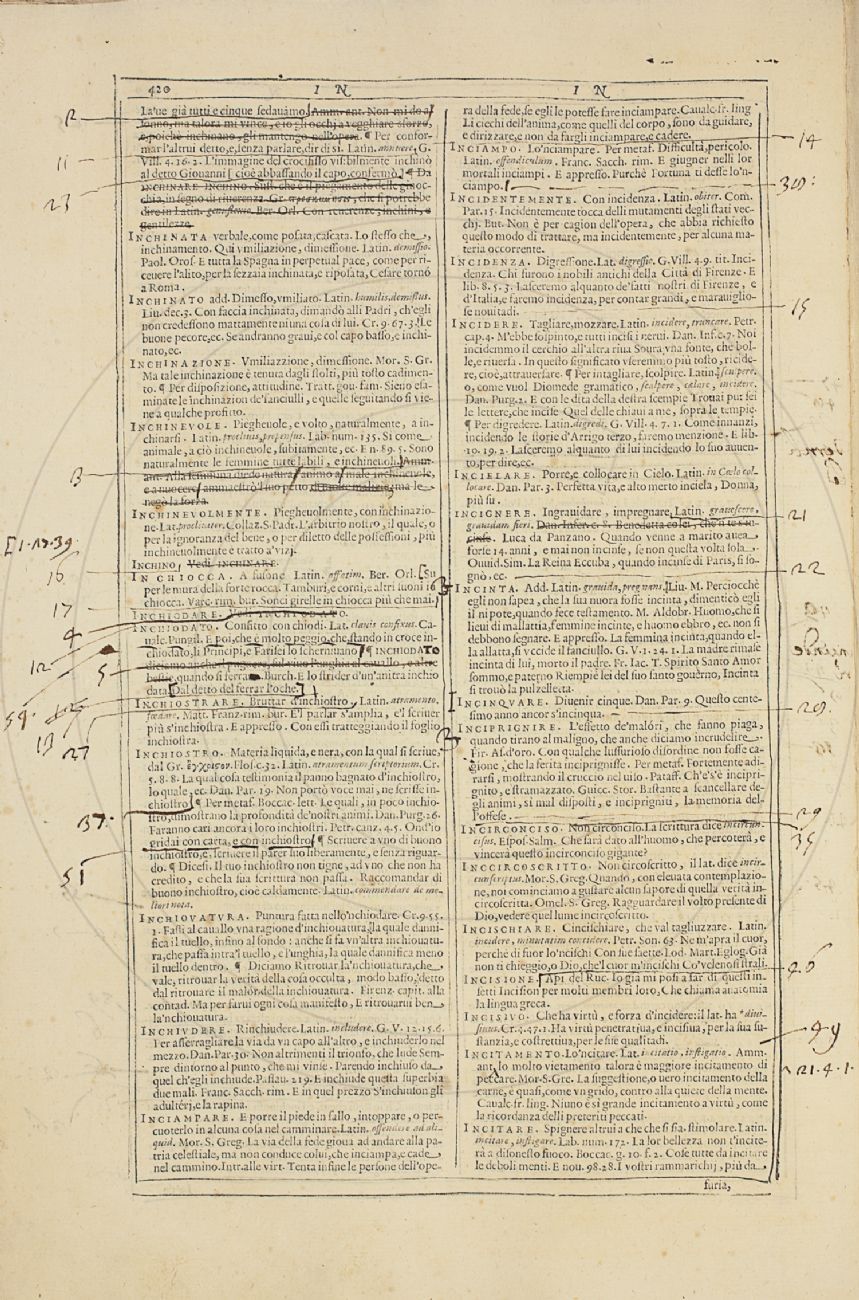 420 I N
I N
La've già tutti e cinque sedavamo. Amm. ant. Non mi do al
sonno, ma talora mi vince, e io gli occhi a vegghiare sforzo,
e poichè inchinano, gli mantengo nell'opera. ¶ Per confor-
mar l'altrui detto, e, senza parlare, dir di sì. Latin. annuere, G.
Vill. 4. 16. 2. L'immagine del crocifisso visibilmente inchinò
al detto Giovanni [cioè abbassando il capo, confermò.] ¶ Da
INCHINARE INCHINO. Sust. che è il piegamento delle ginoc-
chia, in segno di riverenza. Gr.
dire in Latin. genuflexio. Ber. Orl. Con reverenze, inchini, e
gentilezze.
INCHINATA verbale, come posata, cascata. Lo stesso che
inchinamento. Qui vmiliazione, dimessione. Latin. demissio.
Paol. Oros. E tutta la Spagna in perpetual pace, come per ri-
cevere l'alito, per la sezzaia inchinata, e riposata, Cesare tornò
a Roma.
INCHINATO add. Dimesso, vmiliato. Latin. humilis, demissus.
Liu. dec. 3. Con faccia inchinata, dimandò alli Padri, ch'egli
non credessono mattamente niuna cosa di lui. Cr. 9. 67. 3. Le
buone pecore, ec. Se andranno graui, e col capo basso, e inchi-
nato, ec.
INCHINAZIONE. Vmiliazzione, dimessione. Mor. S. Gr.
Ma tale inchinazione è tenuta dagli stolti, più tosto cadimen-
to. ¶ Per disposizione, attitudine. Tratt. gou. fam. Sieno esa-
minate le inchinazion de'fanciulli, e quelle seguitando si vie-
ne a qualche profitto.
INCHINEVOLE. Pieghevole, e volto, naturalmente, a in-
chinarsi. Latin. proclivis, propensus. Lab. num. 135. Si come
animale, a ciò inchineuole, subitamente, ec. E n. 89. 5. Sono
naturalmente le femmine tutte labili, e inchineuoli. Amm.
ant. Alla femmina diede natura animo al male inchineuole,
e a nuocere ammaestrò'l suo petto di molte malizie, ma le
negò la forza.
INCHINEVOLMENTE. Pieghevolmente, con inchinazio-
ne. Lat. procliviter. Collaz. S. Padr. L'arbitrio nostro, il quale, o
per la ignoranza del bene, o per diletto delle possessioni, più
inchineuolmente è tratto a'vizj.
INCHINO, Vedi INCHINARE.
IN CHIOCCA. A fusone Latin. affatim. Ber. Orl. Su
per le mura della forte rocca. Tamburi, e corni, e altri suoni 16
chiocca. Varc. rim. bur. Sonci girelle in chiocca più che mai.
INCHIODARE. Vedi INCHIODATO.
INCHIODATO. Confitto con chiodi. Lat. clavis confixus. Ca-
ualc. Pungil. E poi, che è molto peggio, che, stando in croce in-
chiodato, li Principi, e Farisei lo schernirono. ¶ INCHIODATO
diciamo anche'l pugnere, sul vivo l'unghia al cauallo, e altre
bestie, quando si serra. Burch. E lo strider d'un'anitra inchio
data [Dal detto del ferrar l'oche.]
INCHIOSTRARE. Bruttar d'inchiostro, Latin. atramento
foedare. Matt. Franz. rim. bur. E'l parlar s'amplia, e'l scriuer
più s'inchiostra. E appresso. Con essi tratteggiando il foglio
inchiostra.
INCHIOSTRO. Materia liquida, e nera, con la qual si scriue,
dal Gr. ἔγχριςον. Flos. c. 32. Latin. atramentum scriptorium. Cr.
5. 8. 8. La qual cosa testimonia il panno bagnato d'inchiostro,
lo quale, ec. Dan. Par. 19. Non portò voce mai, ne scrisse in-
chiostro. ¶ Per metaf. Boccac. lett. Le quali, in poco inchio-
stro, dimostrano la profondità de'nostri animi. Dan. Purg. 26.
Faranno cari ancora i loro inchiostri. Petr. canz. 4. 5. Ond'io
gridai con carta, e con inchiostro. ¶ Scriuere a vno di buono
inchiostro, è, scriuere il parer suo liberamente, e senza riguar-
do. ¶ Dicesi. Il tuo inchiostro non tigne, ad vno che non ha
credito, e che la sua scrittura non passa. Raccomandar di
buono inchiostro, cioè caldamente. Latin. commendare de me-
liori nota.
INCHIOVATVRA. Puntura fatta nello'nchiodare. Cr. 9. 55.
1. Fassi al cauallo vna ragione d'inchiouatura, la quale danni-
fica il tuello, infino al fondo: anche si fa vn'altra inchiouatu-
ra, che passa intra'l tuello, e l'unghia, la quale dannifica meno
il tuello dentro. ¶ Diciamo Ritrouar la'nchiouatura, che
vale, ritrouar la verità della cosa occulta, modo basso, detto
dal ritrouare il malore della inchiouatura. Firenz. capit. alla
contad. Ma per farui ogni cosa manifesto, E ritrouarui ben
la'nchiouatura.
INCHIVDERE. Rinchiudere. Latin. includere. G. V. 12. 15. 6.
Per asserragliare la via da vn capo all'altro, e inchiuderlo nel
mezzo. Dan. Par. 30. Non altrimenti il trionfo, che lude Sem-
pre dintorno al punto, che mi vinse. Parendo inchiuso da
quel ch'egli inchiude. Passau. 219. E inchiude questa superbia
due mali. Franc. Sacch. rim. E in quel prezzo S'inchiuton gli
adulterj, e la rapina.
INCIAMPARE. E porre il piede in fallo, intoppare, o per-
cuoterlo in alcuna cosa nel camminare. Latin. offendere ad ali-
quid. Mor. S. Greg. La via della fede gioua ad andare alla pa-
tria celestiale, ma non conduce colui, che inciampa, e cade
nel cammino. Intr. alle virt. Tenta infine le persone dell'ope-
ra della fede, se egli le potesse fare inciampare. Caualc. fr. ling
Li ciechi dell'anima, come quelli del corpo, sono da guidare,
e dirizzare, e non da fargli inciampare, e cadere.
INCIAMPO. Lo'nciampare. Per metaf. Difficultà, pericolo.
Latin. offendiculum. Franc. Sacch. rim. E giugner nelli lor
mortali inciampi. E appresso. Purchè Fortuna ti desse lo'n-
ciampo.
INCIDENTEMENTE. Con incidenza. Latin. obiter. Com.
Par. 15. Incidentemente tocca delli mutamenti degli stati vec-
chj. But. Non è per cagion dell'opera, che abbia richiesto
questo modo di trattare, ma incidentemente, per alcuna ma-
teria occorrente.
INCIDENZA. Digressione. Lat. digressio. G. Vill. 4. 9. tit. Inci-
denza. Chi furono i nobili antichi della Città di Firenze. E
lib. 8. 5. 3. Lasceremo alquanto de'fatti nostri di Firenze, e
d'Italia, e faremo incidenza, per contar grandi, e marauiglio-
se nouitadi.
INCIDERE. Tagliare, mozzare. Latin. incidere, truncare. Petr.
cap. 4. M'ebbe sospinto, e tutti incisi i nerui. Dan. Inf. c. 7. Noi
incidemmo il cerchio all'altra riua Soura vna fonte, che bol-
le, e riuersa. In questo significato vseremmo più tosto, ricide-
re, cioè, attrauersare. ¶ Per intagliare, scolpire. Latin. sculpere.
o, come vuol Diomede gramatico, scalpere, caelare, incidere.
Dan. Purg. 2. E con le dita della destra scempie Trouai pur sei
le lettere, che incise Quel delle chiaui a me, sopra le tempie.
¶ Per digredere. Latin. digredi. G. Vill. 4. 7. 1. Come innanzi,
incidendo le storie d'Arrigo terzo, faremo menzione. E lib.
10. 19. 2. Lasceremo alquanto di lui incidendo lo suo auuen-
to, per dire, ec.
INCIELARE. Porre, e collocare in Cielo. Latin. in Coelo col-
locare. Dan. Par. 3. Perfetta vita, e alto merto inciela, Donna,
più su.
INCIGNERE. Ingrauidare, impregnare, Latin. grauescere,
grauidam fieri. Dan. Infer. c. 8. Benedetta colei, che'n te s'in-
cinse. Luca da Panzano. Quando venne a marito auea
forse 14. anni, e mai non incinse, se non questa volta sola.
Ouuid. Sim. La Reina Eccuba, quando incinse di Paris, si so-
gnò, ec.
INCINTA. Add. Latin. grauida, pregnans. Liu. M. Perciocchè
egli non sapea, che la sua nuora fosse incinta, dimenticò egli
il nipote, quando fece testamento. M. Aldobr. Huomo, che si
leui di malattia, femmine incinte, e huomo ebbro, ec. non si
debbono segnare. E appresso. La femmina incinta, quando el-
la allatta, si vccide il fanciullo. G. V. 1. 24. 1. La madre rimase
incinta di lui, morto il padre. Fr. Iac. T. Spirito Santo Amor
sommo, e paterno Riempiè lei del suo santo gouerno, Incinta
si trouò la pulzelletta.
INCINQVARE. Diuenir cinque. Dan. Par. 9. Questo cente-
simo anno ancor s'incinqua.
INCIPRIGNIRE. L'effetto de'malori, che fanno piaga,
quando tirano al maligno, che anche diciamo incrudelire
Fir. As. d'oro. Con qualche lussurioso disordine non fosse ca-
gione, che la ferita inciprignisse. Per metaf. Fortemente adi-
rarsi, mostrando il cruccio nel viso. Pataff. Ch'e's'è incipri-
gnito, e stramazzato. Guicc. Stor. Bastante a scancellare de-
gli animi, sì mal disposti, e incipriguiti, la memoria del-
l'offese.
INCIRCONCISO. Non circonciso. La scrittura dice incircun-
cisus. Espos. Salm. Che sarà dato all'huomo, che percoterà, e
vincerà questo incirconciso gigante?
INCIRCOSCRITTO. Non circoscritto, il lat. dice incir-
cumscriptus. Mor. S. Greg. Quando, con eleuata contemplazio-
ne, noi cominciamo a gustare alcun sapore di quella verità in-
circoscritta. Omel. S. Greg. Ragguardare il volto presente di
Dio, vedere quel lume incircoscritto.
INCISCHIARE. Cincischiare, che val tagliuzzare. Latin.
incidere, minutatim concidere. Petr. Son. 63. Ne m'apra il cuor,
perchè di fuor lo'ncischi Con sue saette. Lod. Mart. Eglog. Già
non ti chieggio, o Dio, che'l cuor m'incischi Co'velenosi strali.
INCISIONE. Api del Ruc. Io già mi posi a far di questi in-
setti Incision per molti membri loro, Che chiama anatomia
la lingua greca.
INCISIVO. Che ha virtù, e forza d'incidere: il lat. ha diui-
siuus. Cr. 3. 47. 1. Ha virtù penetratiua, e incisiua, per la sua su-
stanzia, e costrettiua, per le sue qualitadi.
INCITAMENTO. Lo'ncitare. Lat. incitatio, instigatio. Amm.
ant. lo molto vietamento talora è maggiore incitamento di
peccare. Mor. S. Gre. La suggestione, o uero incitamento della
carne, è quasi, come vn grido, contro alla quiete della mente.
Caualc. fr. ling. Niuno è sì grande incitamento a virtù, come
la ricordanza delli preteriti peccati.
INCITARE. Spignere altrui a che che si sia, stimolare. Latin.
incitare, instigare. Lab. num. 172. La lor bellezza non t'incite-
rà a disonesto fuoco. Boccac. g. 10. f. 2. Cose tutte da incitare
le deboli menti. E nou. 98. 28. I vostri rammarichij, più da
furia,
11
23
13
16
17
4
12
5
59.
19
27
37.
51
14
15
21
22
20.
29
35
49
21. 4. 1.